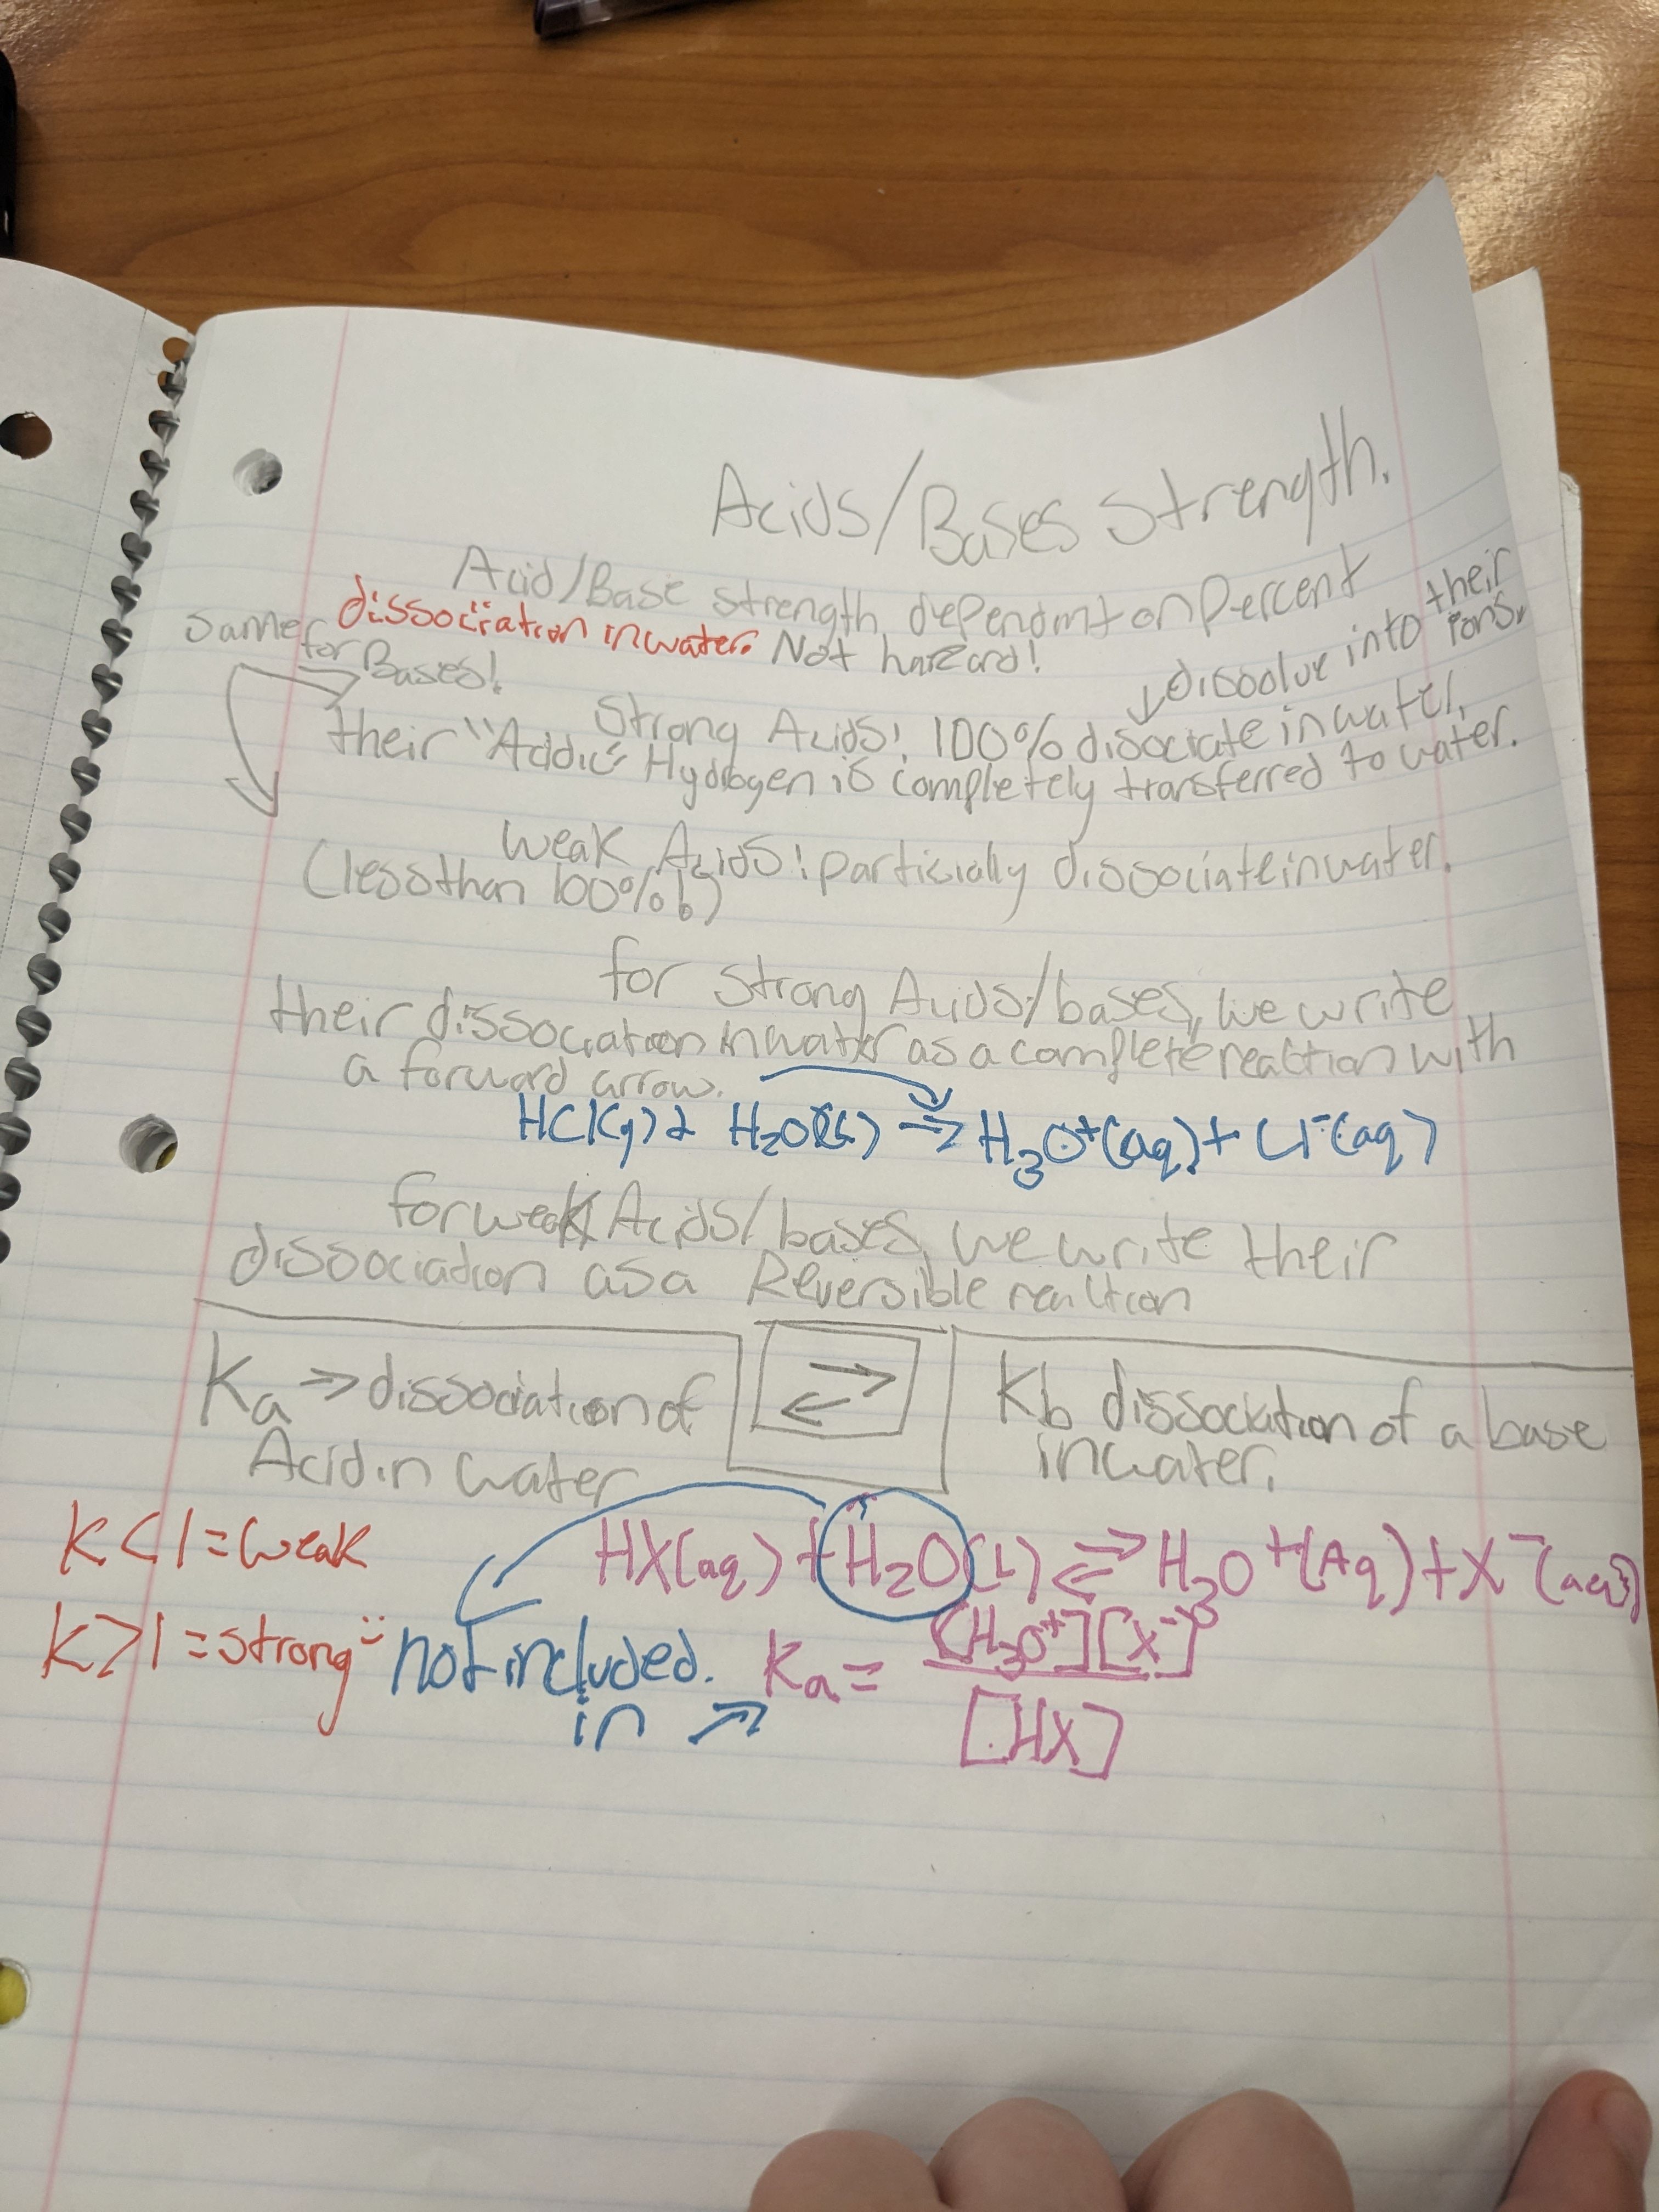 Acids/Bases Strength.
Acid/Base strength dependant on Percent
dissociation in water. Not hazard!
Same for Bases!
dissolve into their ions.
Strong Acids: 100% disociate in water,
their "Acidic" Hydrogen is completely transferred to water.
weak Acids: particially dissociate in water.
(less than 100%!)
for strong Acids/bases, we write
their dissociation in water as a complete reaction with
a forward arrow.
HCl(g) + H₂O(l) → H₃O⁺(aq) + Cl⁻(aq)
for weak Acids/bases, we write their
dissociation as a Reversible reaction
Ka → dissociation of
Acid in water
⇌
Kb dissociation of a base
in water.
K<1 = weak
K>1 = strong
HX(aq) + H₂O(L) ⇌ H₃O⁺(Aq) + X⁻(aq)
not included.
in →
Ka = [H₃O⁺][X⁻]
[HX]